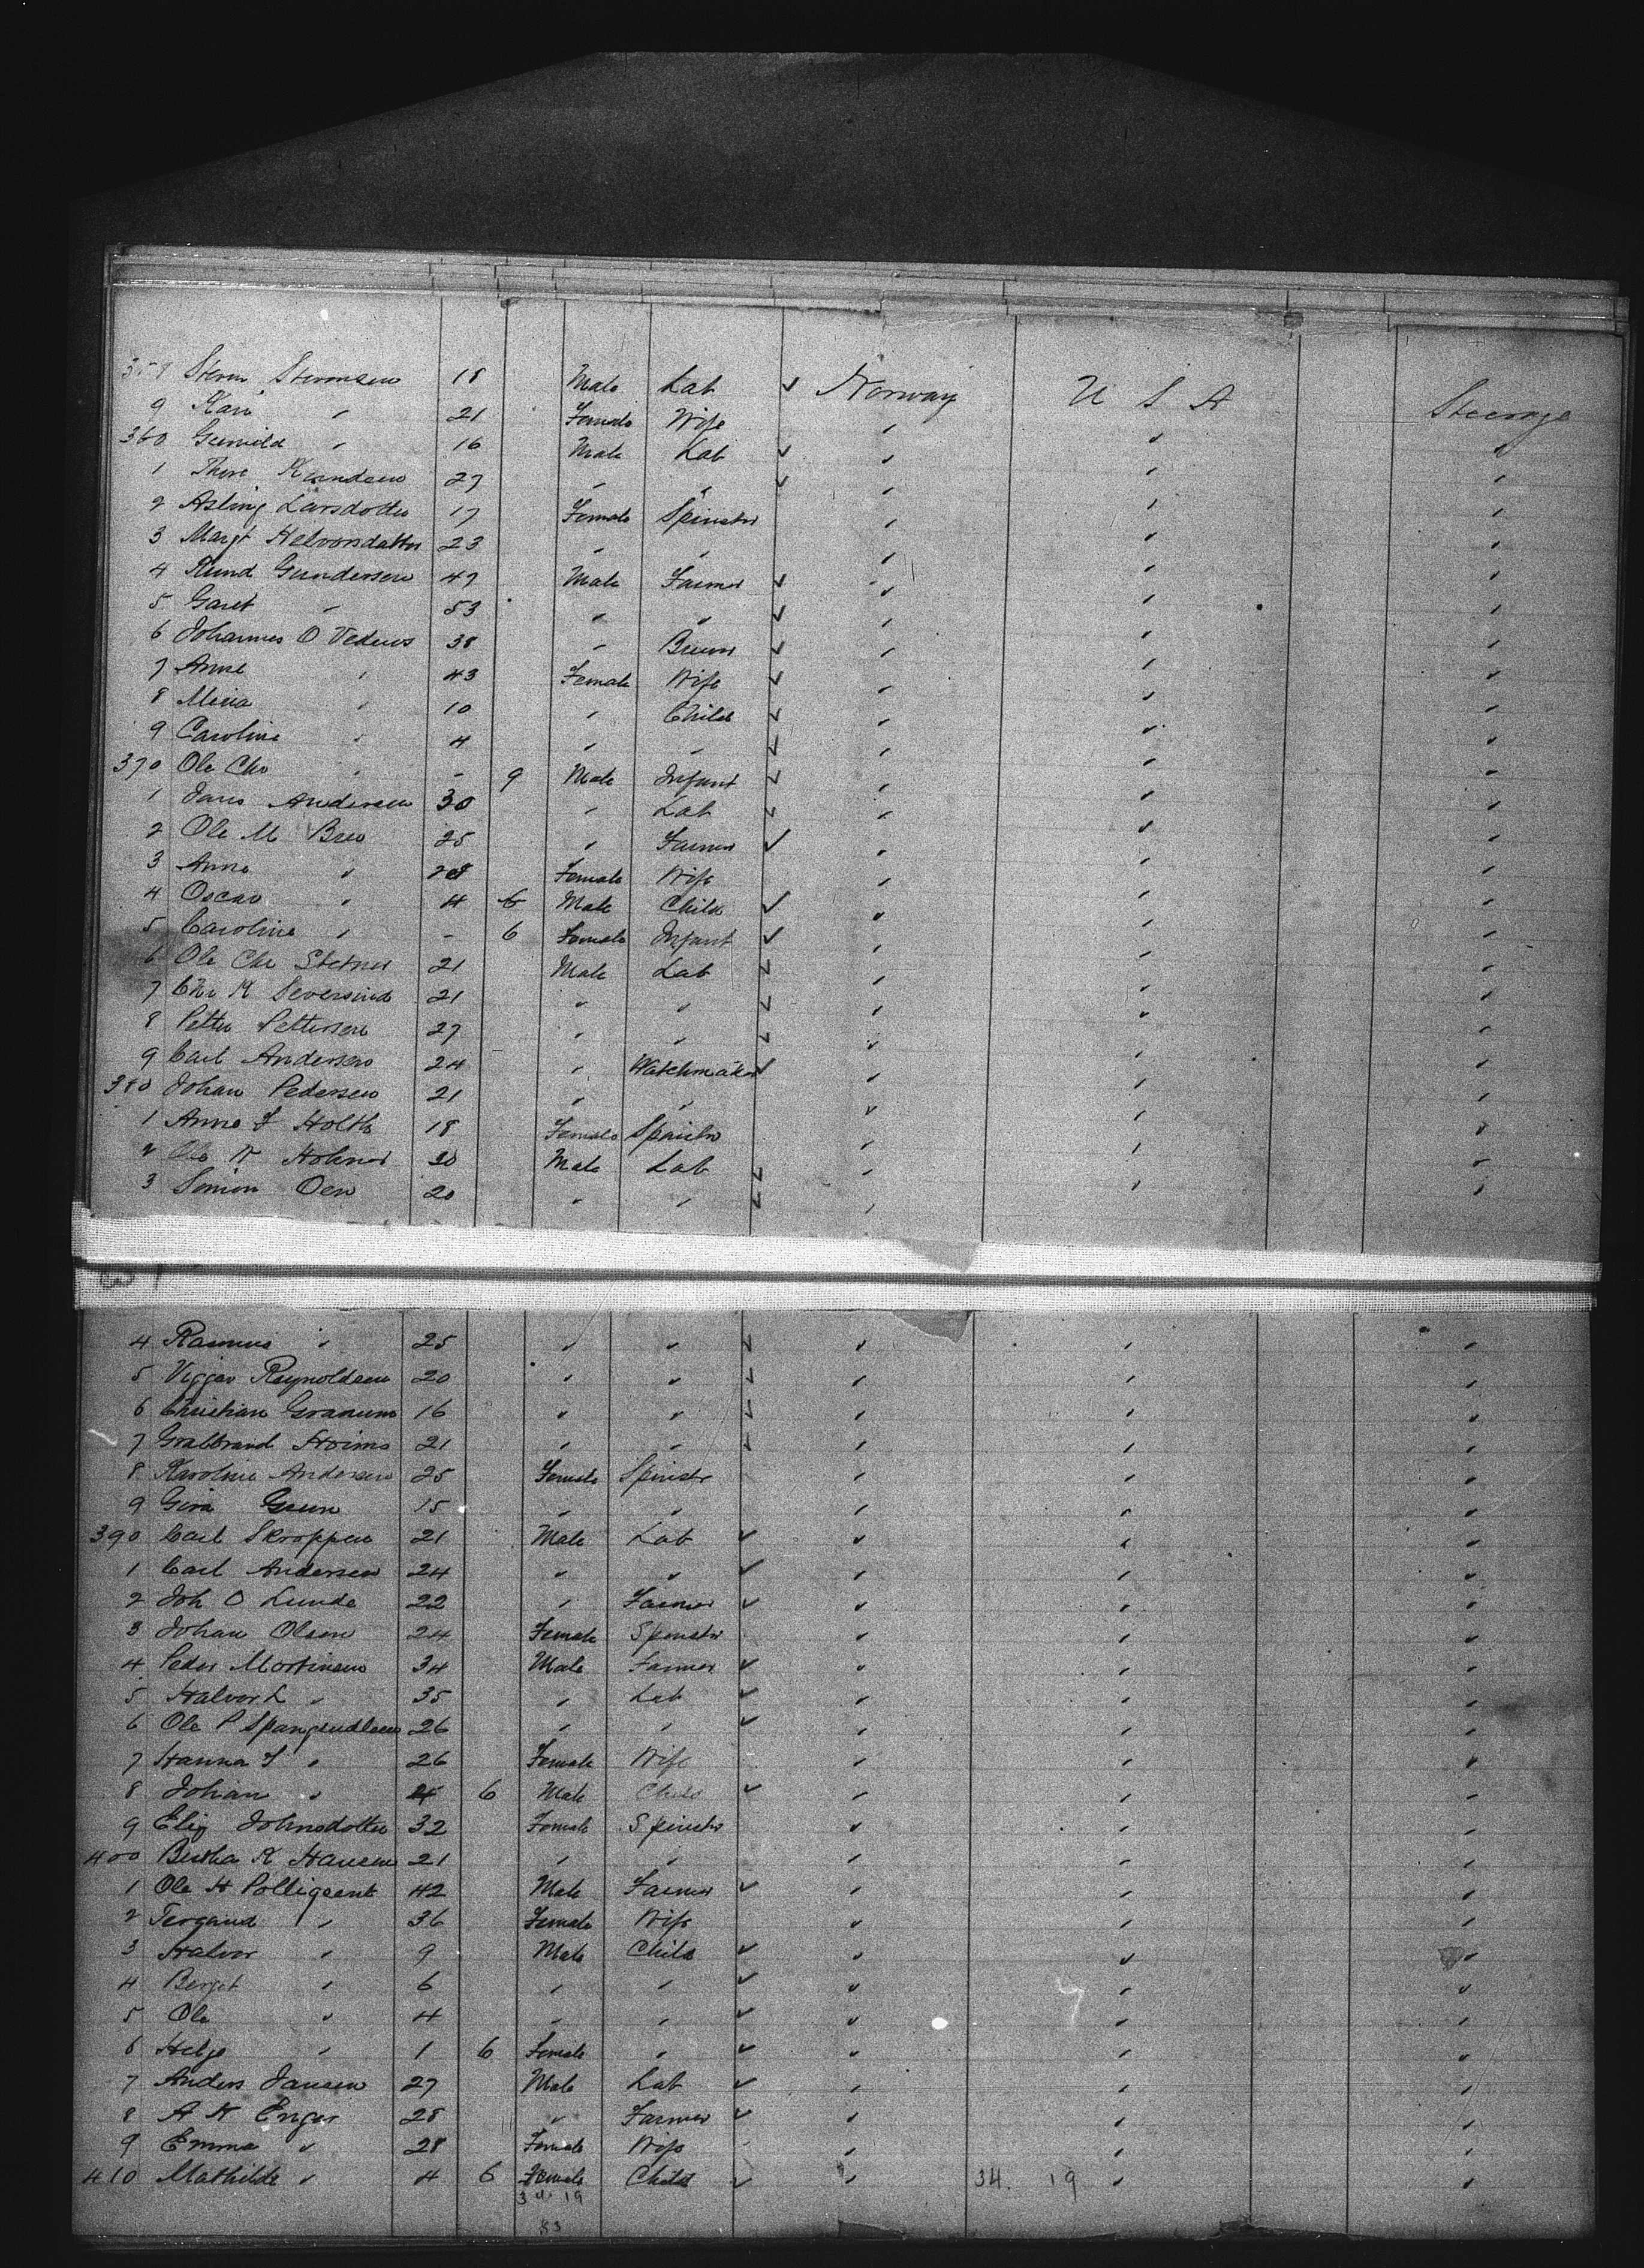 358 Steven Stevensen 18 Male Lab ✓ Norway U S A Steerage
9 Kari " 21 Female Wife " " "
360 Gunild " 16 Male Lab ✓ " " "
1 Thore Knudsen 27 " " ✓ " " "
2 Asling Larsdotter 17 Female Spinster " " "
3 Margt Halvorsdatter 23 " " " " "
4 Knud Gundersen 47 Male Farmer ✓ " " "
5 Garet " 53 " " ✓ " " "
6 Johannes O 38 " ✓ " " "
7 Anne " 43 Female Wife ✓ " " "
8 Mina " 10 " Child ✓ " " "
9 Caroline " 4 " " ✓ " " "
370 Ole Chr " - 9 Male Infant ✓ " " "
1 Jans Andersen 30 " Lab ✓ " " "
2 Ole M Bren 25 " Farmer ✓ " " "
3 Anne " 28 Female Wife " " "
4 Oscar " 4 6 Male Child ✓ " " "
5 Caroline " - 6 Female Infant ✓ " " "
6 Ole Chr 21 Male Lab ✓ " " "
7 Chr K 21 " " ✓ " " "
8 Petter Pettersen 27 " " ✓ " " "
9 Carl Andersen 24 " Watchmaker ✓ " " "
380 Johan Pedersen 21 " " " " "
1 Anne F Holth 18 Female Spinster " " "
2 Ole N 20 Male Lab ✓ " " "
3 Simon Oen 20 " " ✓ " " "
4 Rasmus " 25 " " ✓ " " "
5 Viggar Reynoldsen 20 " " ✓ " " "
6 Christian Granum 16 " " ✓ " " "
7 Gulbrand 21 " " ✓ " " "
8 Karoline Andersen 25 Female Spinstr " " "
9 Gina 15 " " " " "
390 Carl Skroppen 21 Male Lab ✓ " " "
1 Carl Andersen 24 " " ✓ " " "
2 Joh O Lunde 22 " Farmer ✓ " " "
3 Johan Olsen 24 Female Spinster " " "
4 Peder Mortensen 34 Male Farmer ✓ " " "
5 Halvor L " 35 " Lab ✓ " " "
6 Ole P Spangrudlien 26 " " ✓ " " "
7 Hanna F " 26 Female Wife " " "
8 Johan " 4 6 Male Child ✓ " " "
9 Elig Johnsdotter 32 Female Spinster " " "
400 Bertha K Hansen 21 " " " " "
1 Ole H Polligeant 42 Male Farmer ✓ " " "
2 Tergund " 36 Female Wife " " "
3 Halvor " 9 Male Child ✓ " " "
4 Berget " 6 " " ✓ " " "
5 Ole " 4 " " ✓ " " "
6 Helge " 1 6 Female " ✓ " " "
7 Anders Jansen 27 Male Lab ✓ " " "
8 A H Enger 28 " Farmer ✓ " " "
9 Emma " 28 Female Wife " " "
410 Mathilde " 4 6 Female Child ✓ " 34. 19 " "
34 19
83